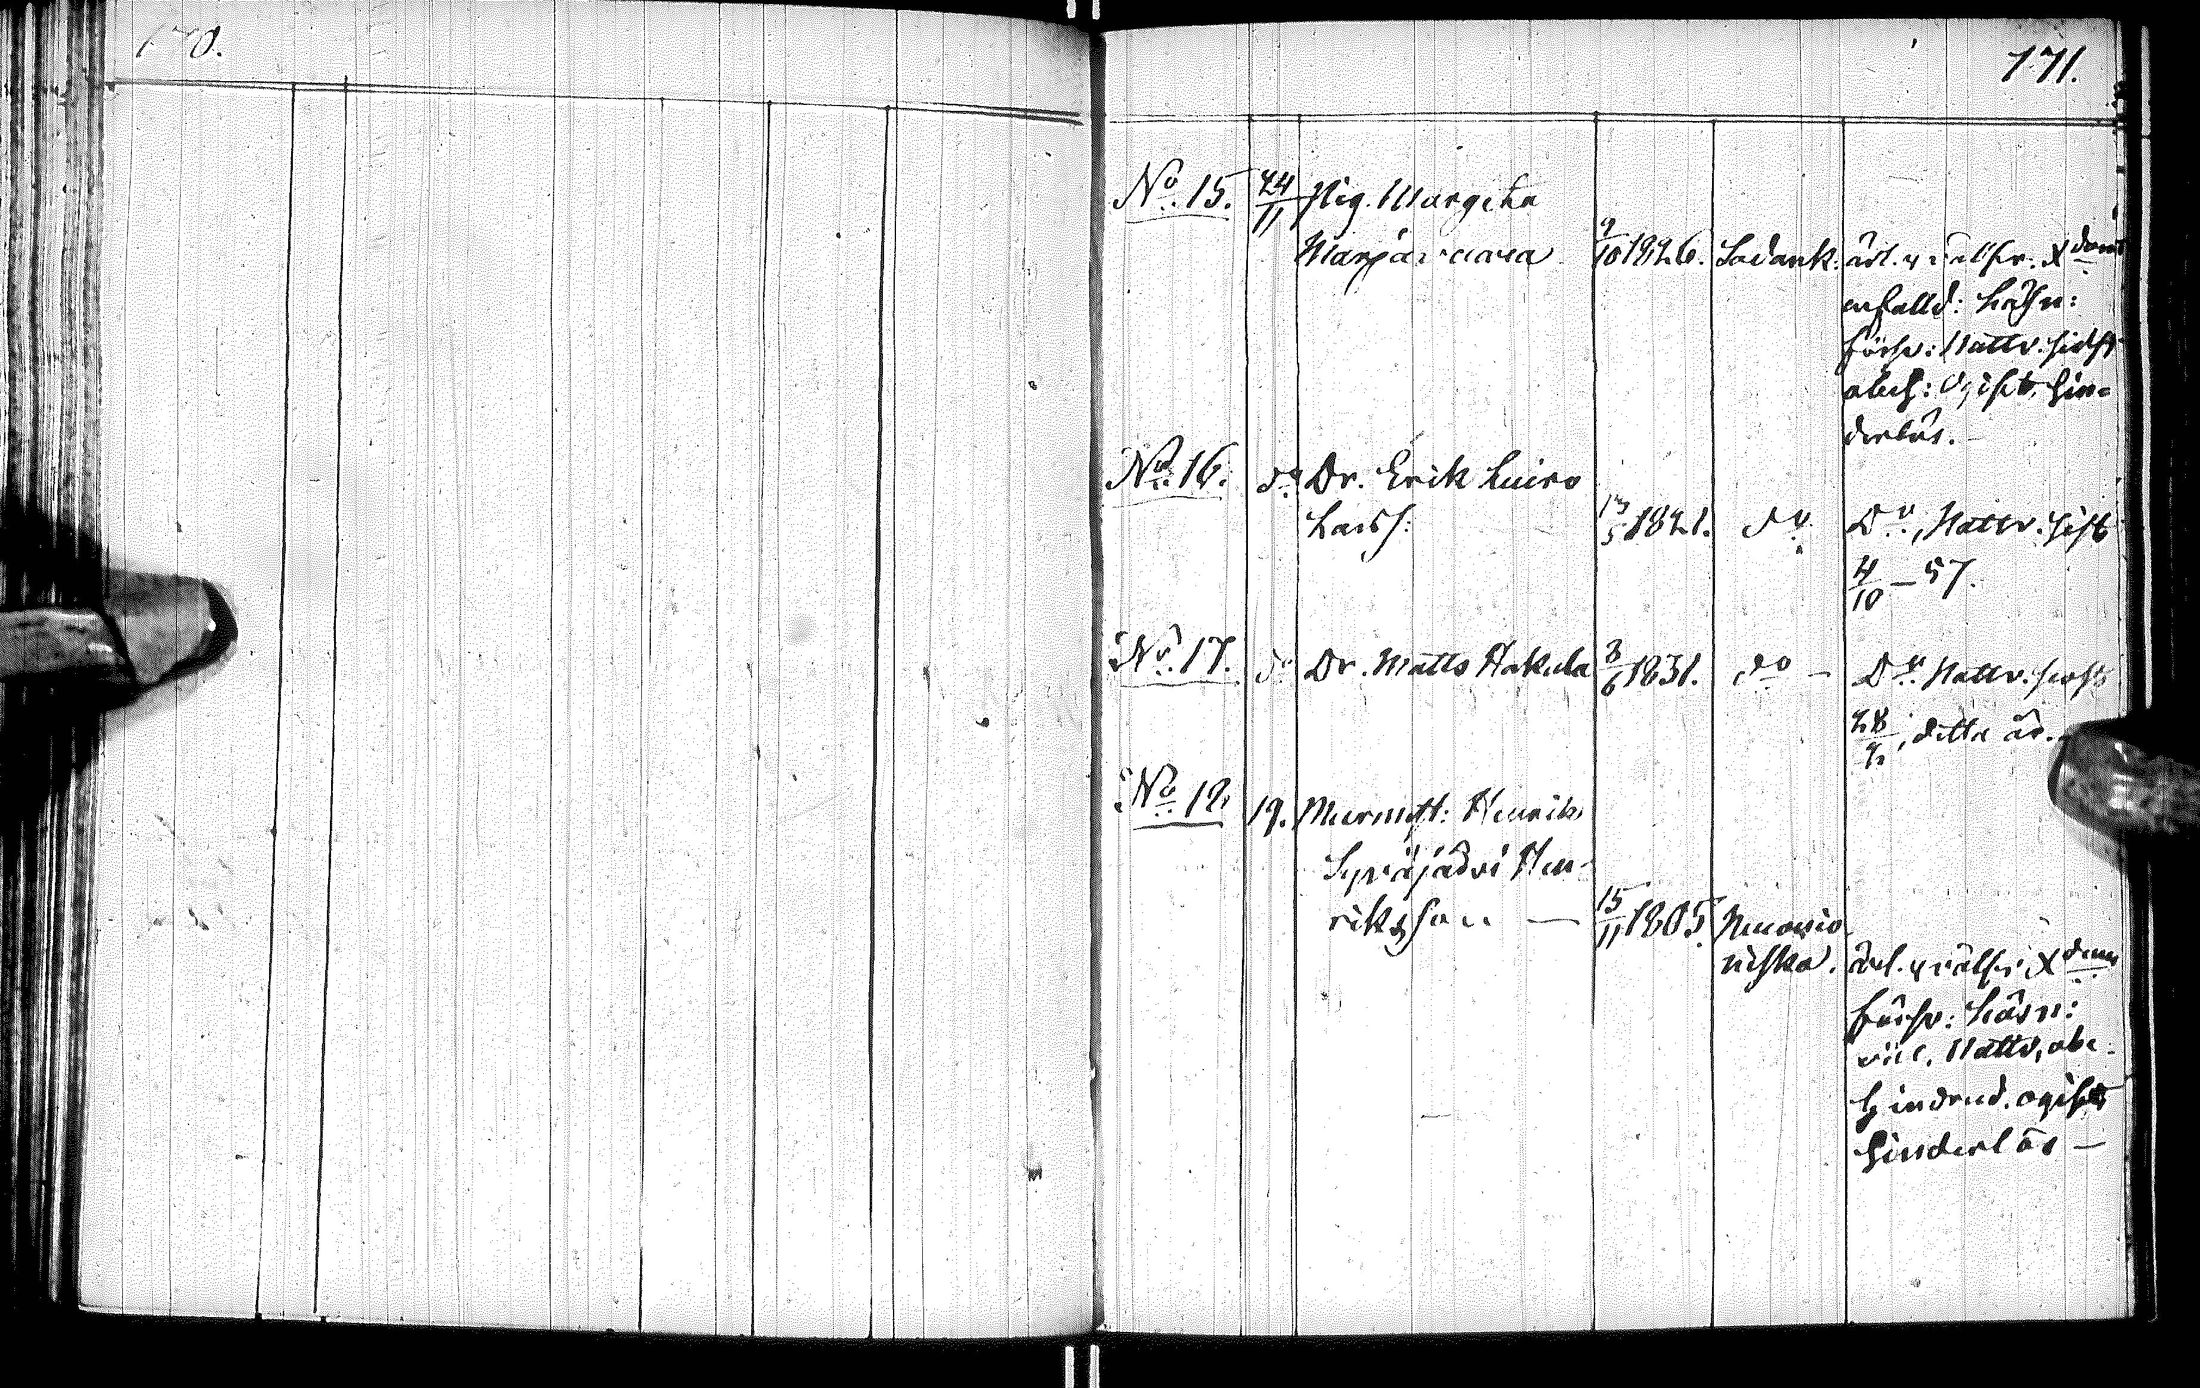 170.
171.
No. 15. 24/11 Pig. Margeta
Marjavaara 9/10 1826. Sodank: ärl. & välfr. Xdom
enfalld: läsn:
försv: Nattv: sidst
obeh: Ogift, hin-
derlös. -
No. 16. do Dr. Erik Luiro
Larss: 13/5 1821. do Do, Nattv. sist
4/10 - 57.
No. 17. do Dr. Matts Hakela 3/6 1831. do - Do Nattv: sist
28/2, detta år.
No. 18. 19. Murmest: Henrik
Syväjärvi Hen-
riksson - 15/11 1805. Muonio
niska. ärl. & välfr. Xdom
försv: läsn:
väl, Nattv, obe-
hindrad. ogift
hinderlös -